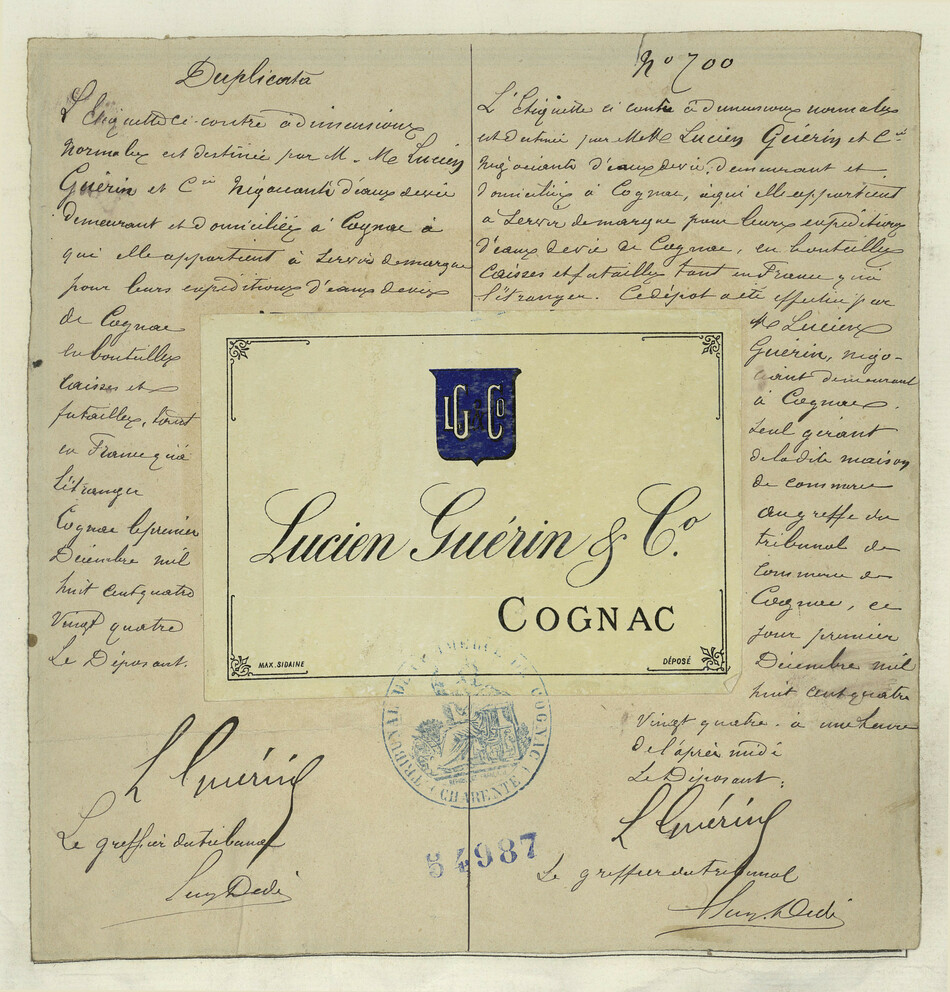 Duplicata
L'Etiquette ci-contre à dimensions
normales est destinée par M. Me Lucien
Guérin et Cie Négociants d'eaux de vie
demeurant et domiciliés à Cognac à
qui elle appartient à servir de marque
pour leurs expéditions d'eaux de vie
de Cognac
en bouteilles
caisses et
futailles, tant
en France qu'à
l'étranger
Cognac le premier
Décembre mil
huit cent quatre
Vingt quatre
Le Déposant.
L Guérin
Le greffier du tribunal
No 700
L'Etiquette ci contre à dimensions normales
est destinée par Lucien Guérin et Cie
Négociants d'eaux de vie, demeurant et
domiciliés à Cognac, à qui elle appartient
à servir de marque pour leurs expéditions
d'eaux de vie de Cognac, en bouteilles
caisses et futailles tant en France qu'à
l'étranger. Ce dépot a été effectué par
Me Lucien
Guérin, négo-
ciant demeurant
à Cognac,
seul gérant
de la dite maison
de commerce
au greffe du
tribunal de
Commerce de
Cognac, ce
jour premier
Décembre mil
huit cent quatre
Vingt quatre. à une heure
de l'après midi
Le Déposant.
L Guérin
Le greffier du tribunal
LG & Co
Lucien Guérin & Co.
COGNAC
MAX. SIDAINE
DÉPOSÉ
TRIBUNAL DE COMMERCE DE COGNAC
(CHARENTE)
54987